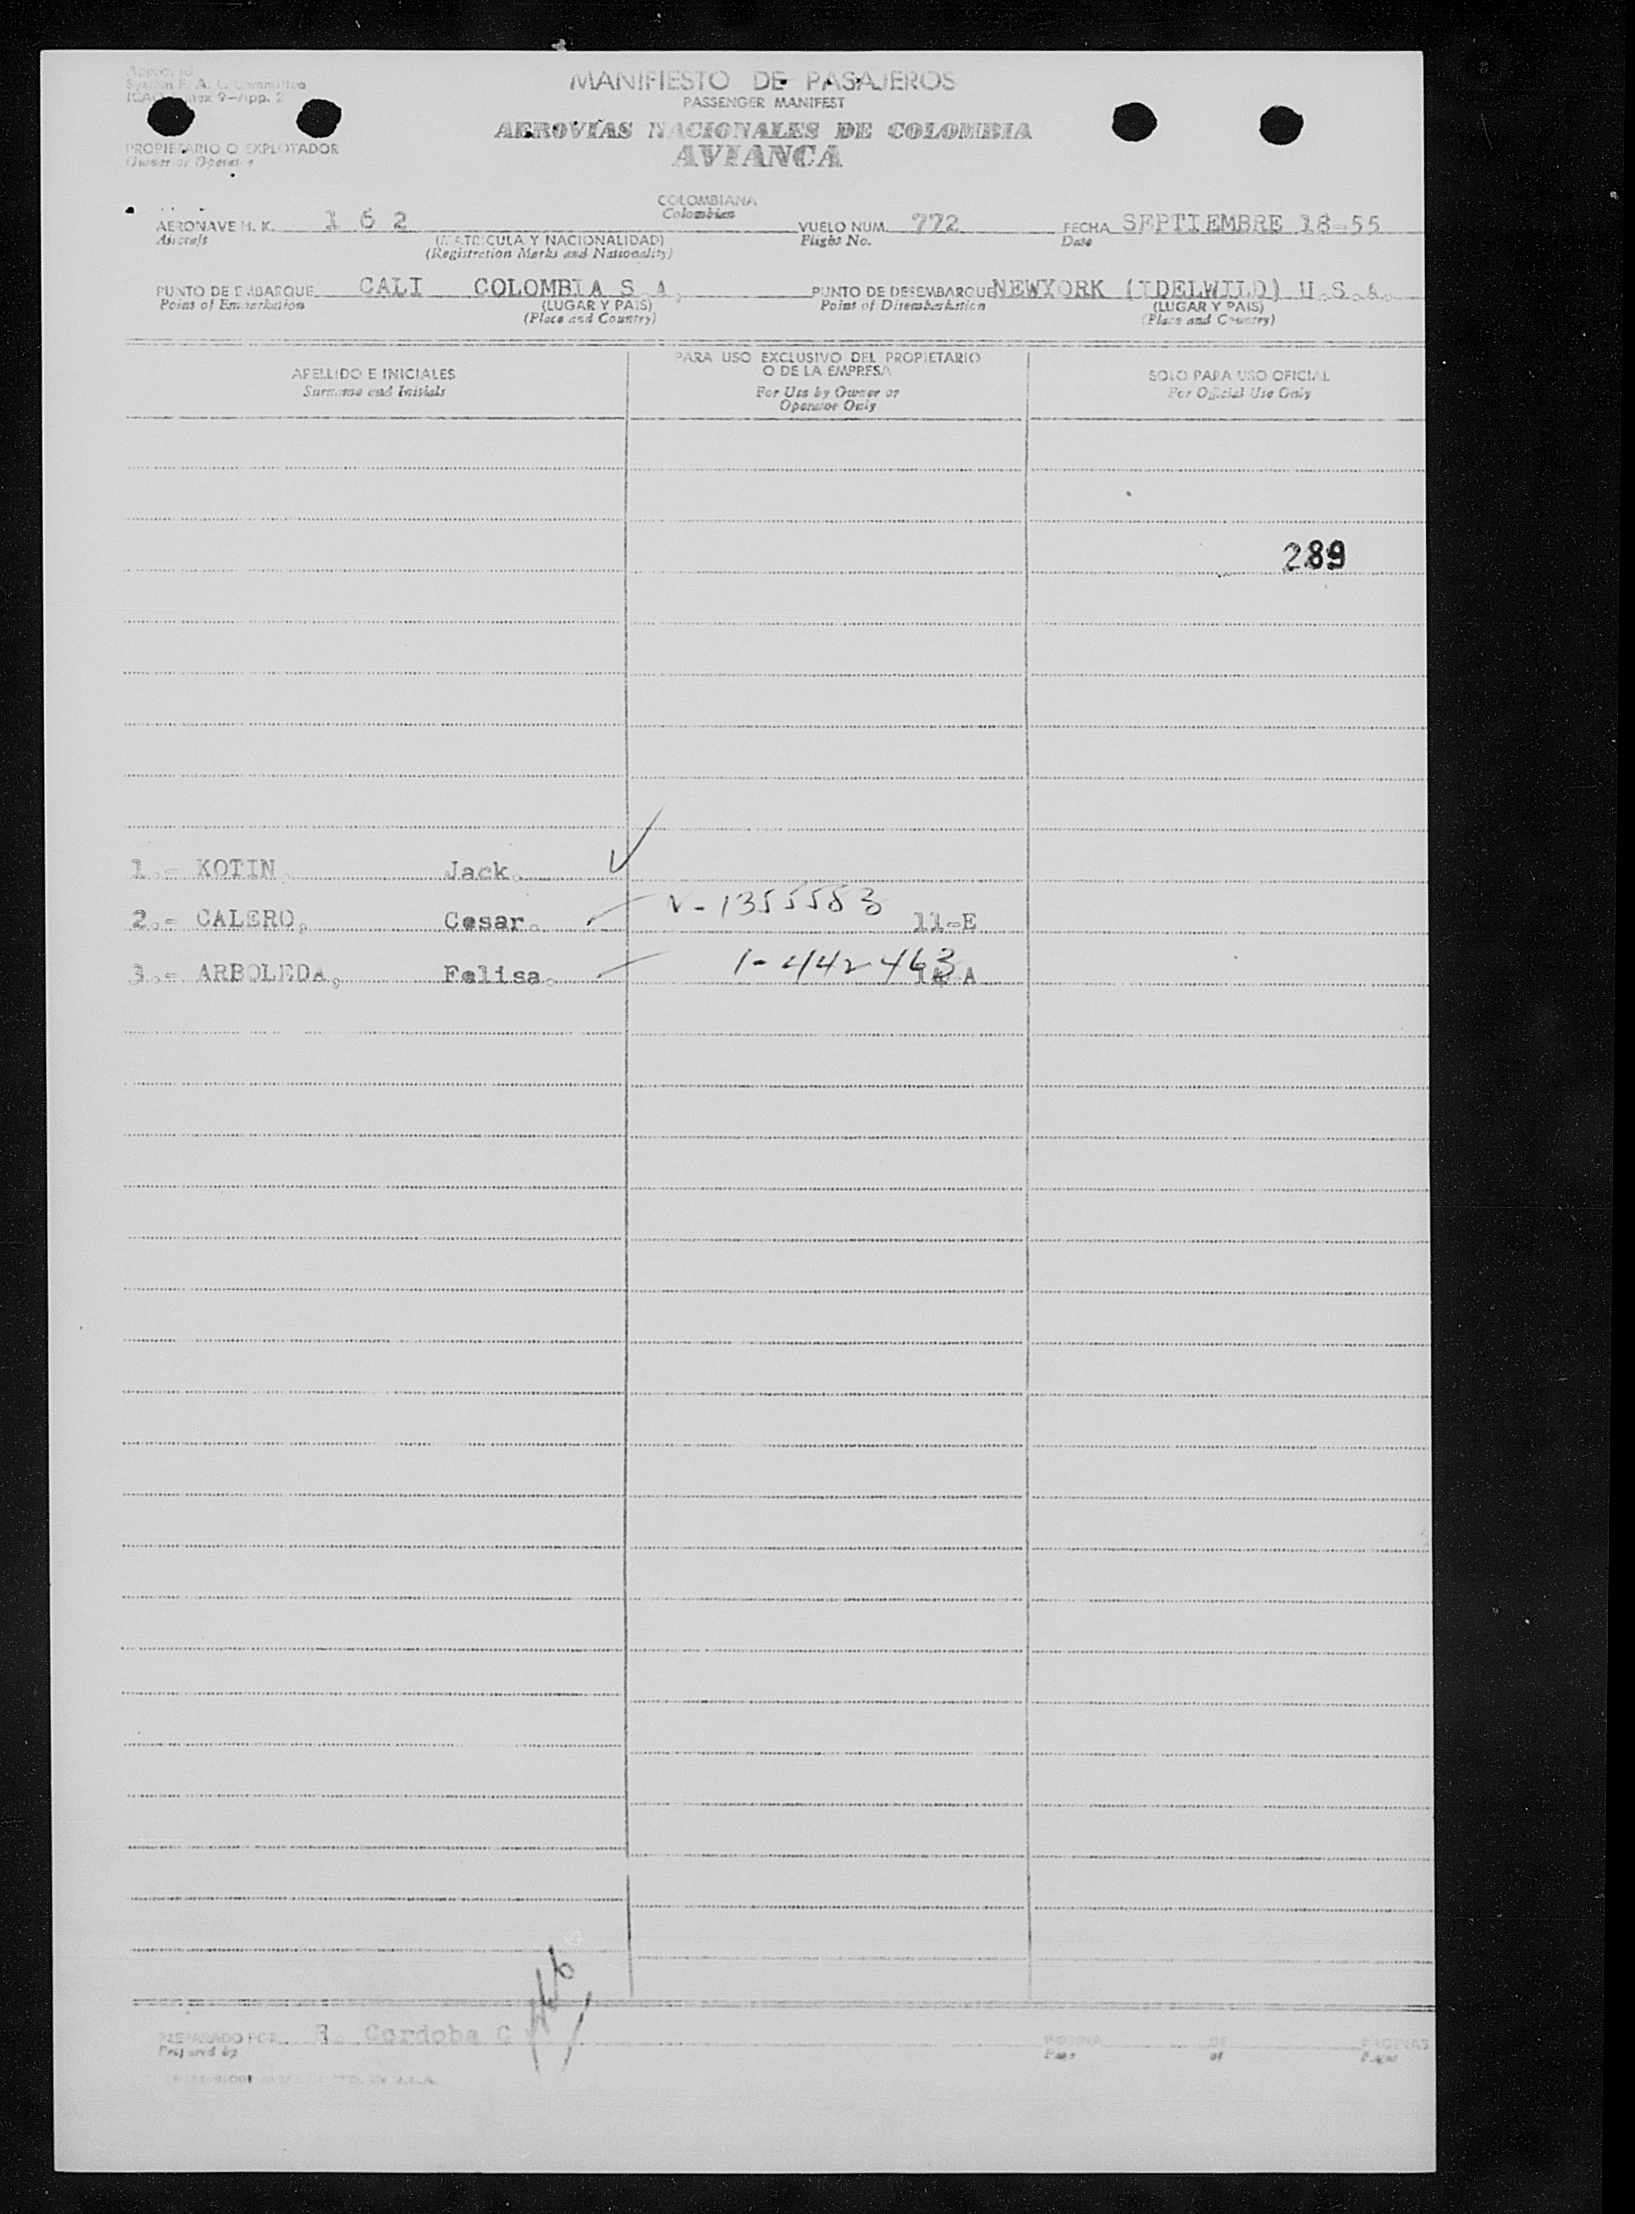 Approved
System F. A. L. Committee
ICAO Annex 9-App. 2
MANIFIESTO DE PASAJEROS
PASSENGER MANIFEST
AEROVIAS NACIONALES DE COLOMBIA
AVIANCA
PROPIETARIO O EXPLOTADOR
Owner or Operator
COLOMBIANA
Colombian
AERONAVE H. K. 1 6 2 VUELO NUM. 772 FECHA SEPTIEMBRE 18-55
Aircraft (MATRICULA Y NACIONALIDAD) Flight No. Date
(Registration Marks and Nationality)
PUNTO DE EMBARQUE CALI COLOMBIA S.A, PUNTO DE DESEMBARQUE NEWYORK (IDELWILD) U.S.A.
Point of Embarkation (LUGAR Y PAIS) Point of Disembarkation (LUGAR Y PAIS)
(Place and Country) (Place and Country)
APELLIDO E INICIALES
Surname and Initials
PARA USO EXCLUSIVO DEL PROPIETARIO
O DE LA EMPRESA
For Use by Owner or
Operator Only
SOLO PARA USO OFICIAL
For Official Use Only
289
1.- KOTIN Jack.
2.- CALERO, Cesar. V-1355583 11-E
3.- ARBOLEDA, Felisa. 1-442463 A
PREPARADO POR R. Cordoba C PAGINA DE PAGINAS
Prepared by Page of Pages